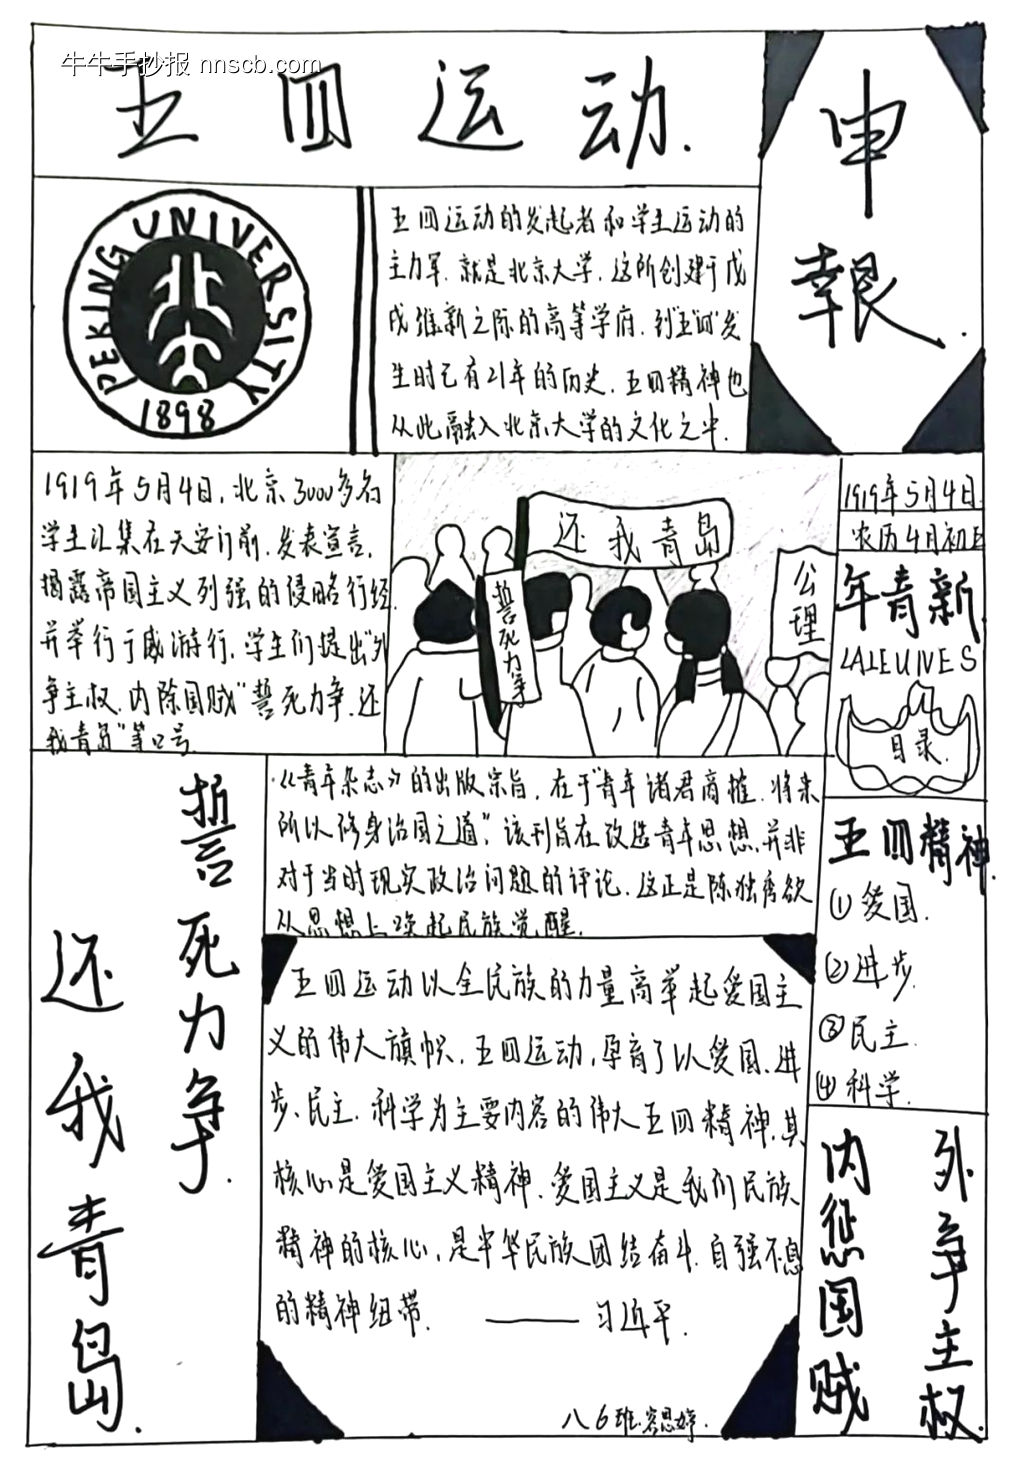 牛牛手抄报 nnscb.com
五四运动.
申
報.
PEKING UNIVERSITY
1898
五四运动的发起者和学生运动的
主力军,就是北京大学.这所创建于戊
戌维新之际的高等学府.到"五四"发
生时已有21年的历史.五四精神也
从此融入北京大学的文化之中.
1919年5月4日,北京3000多名
学生汇集在天安门前,发表宣言,
揭露帝国主义列强的侵略行经
并举行示威游行.学生们提出"外
争主权、内除国贼""誓死力争,还
我青岛"等口号.
还我青岛
誓死力争
公理
1919年5月4日
农历4月初五
年青新
LALEUNVES
目录.
五四精神.
①爱国.
②进步.
③民主.
④科学.
外争主权.
内惩国贼
誓死力争.
还我青岛.
《青年杂志》的出版宗旨,在于"青年诸君商榷.将来
所以修身治国之道".该刊旨在改造青年思想,并非
对于当时现实政治问题的评论,这正是陈独秀欲
从思想上唤起民族觉醒.
五四运动以全民族的力量高举起爱国主
义的伟大旗帜.五四运动,孕育了以爱国、进
步、民主、科学为主要内容的伟大五四精神,其
核心是爱国主义精神.爱国主义是我们民族
精神的核心,是中华民族团结奋斗.自强不息
的精神纽带.
——习近平.
八6班.容思婷.